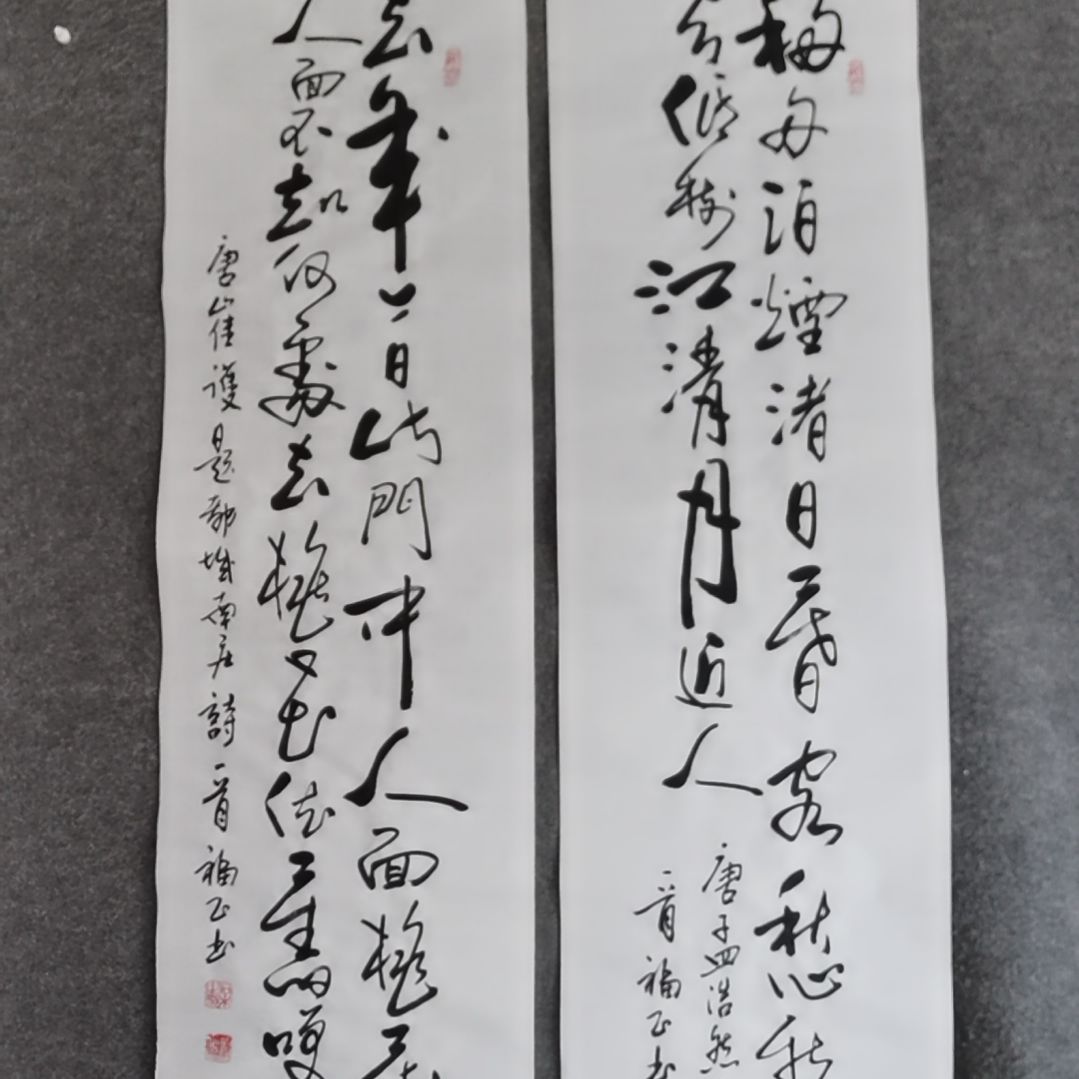 移舟泊煙渚日暮客愁新
低樹江清月近人
唐孟浩然
一首福正书
去年今日此門中人面桃花
人面不知何處去桃花依舊咲
唐崔護題都城南庄詩一首福正书